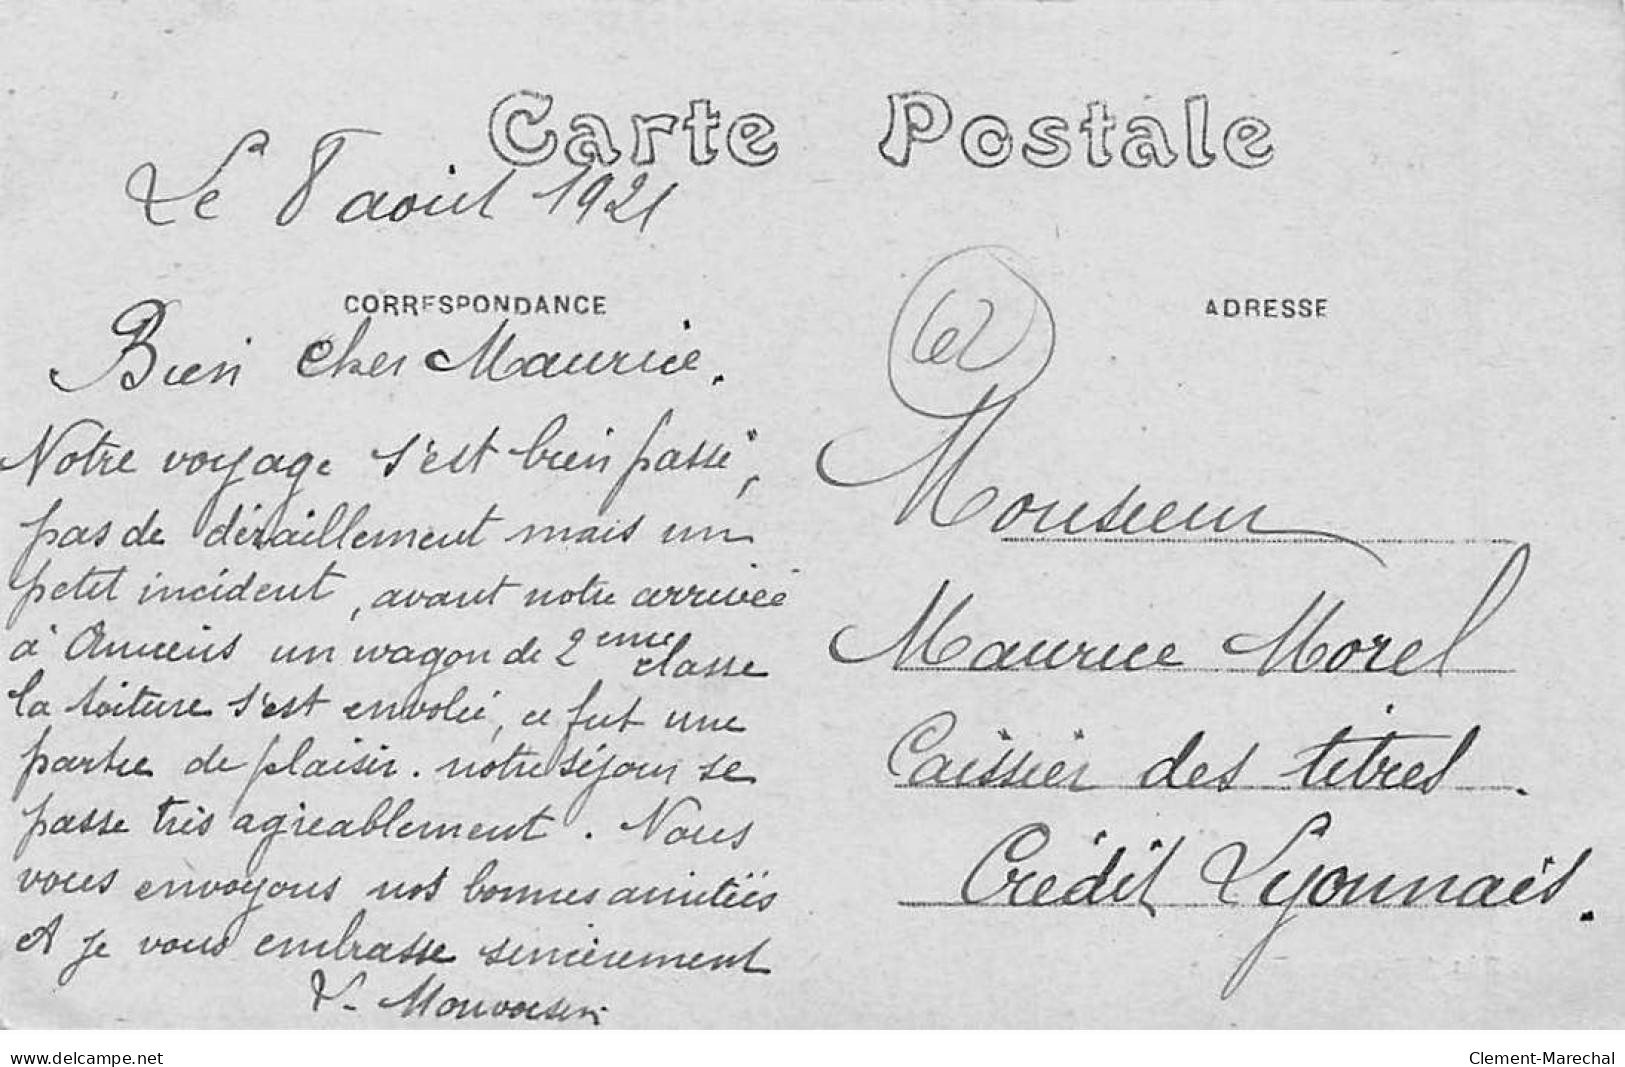 Carte Postale
Le 8 aout 1921
CORRESPONDANCE
Bien cher Maurice.
Notre voyage s'est bien passé,
pas de déraillement mais un
petit incident, avant notre arrivée
à Amiens un wagon de 2eme classe
la toiture s'est envolée, ce fut une
partie de plaisir. notre séjour se
passe très agréablement. Nous
vous envoyons nos bonnes amitiés
et je vous embrasse sincèrement
V. Monvoisin
ADRESSE
62
Monsieur
Maurice Morel
Caissier des titres.
Crédit Lyonnais.
www.delcampe.net
Clement-Marechal